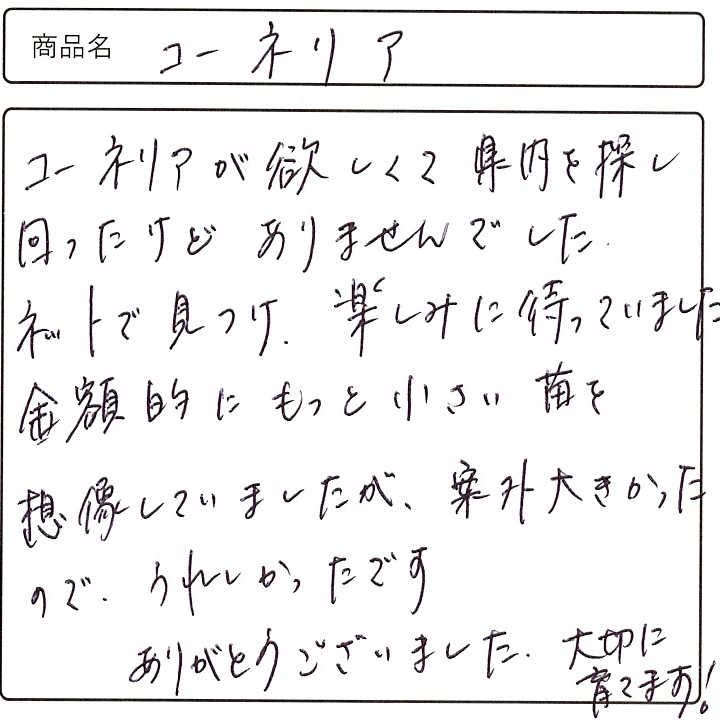 商品名 コーネリア
コーネリアが欲しくて県内を探し
回ったけど ありませんでした.
ネットで見つけ. 楽しみに待っていました
金額的にもっと小さい苗を
想像していましたが、案外大きかった
ので. うれしかったです
ありがとうございました. 大切に
育てます!